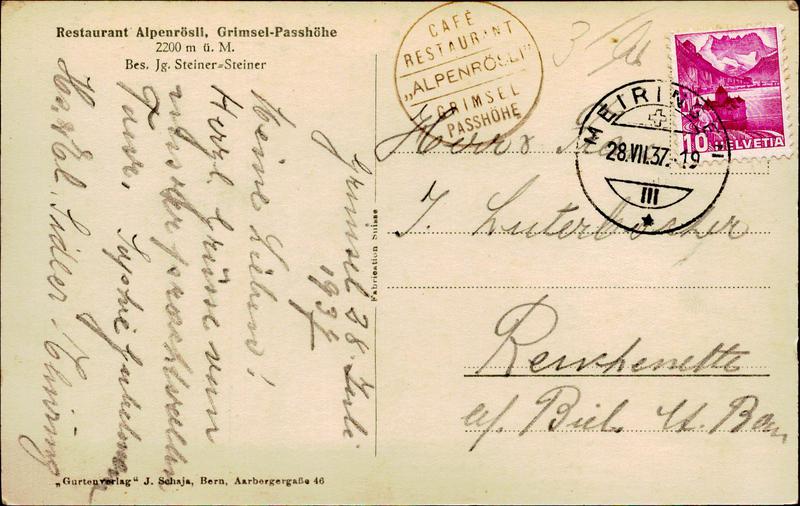 Restaurant Alpenrösli, Grimsel-Passhöhe
2200 m ü. M.
Bes. Jg. Steiner-Steiner
CAFÉ
RESTAURANT
„ALPENRÖSLI"
GRIMSEL
PASSHÖHE
MEIRINGEN
28.VII.37.-19
III
10 HELVETIA
Grimsel 28. Juli
1937
Meine Lieben!
Herzl. Grüsse von
unserer prachtvollen
Tour,
Sophie
Herr
J. Luterbacher
Reuchenette
b/ Biel Kt. Bern
Fabrication Suisse
„Gurtenverlag" J. Schaja, Bern, Aarbergergaße 46